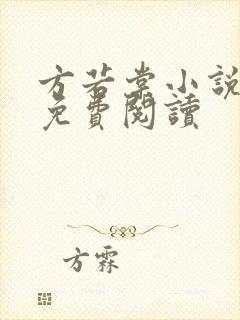 方若棠小說
免費閱讀
方霖